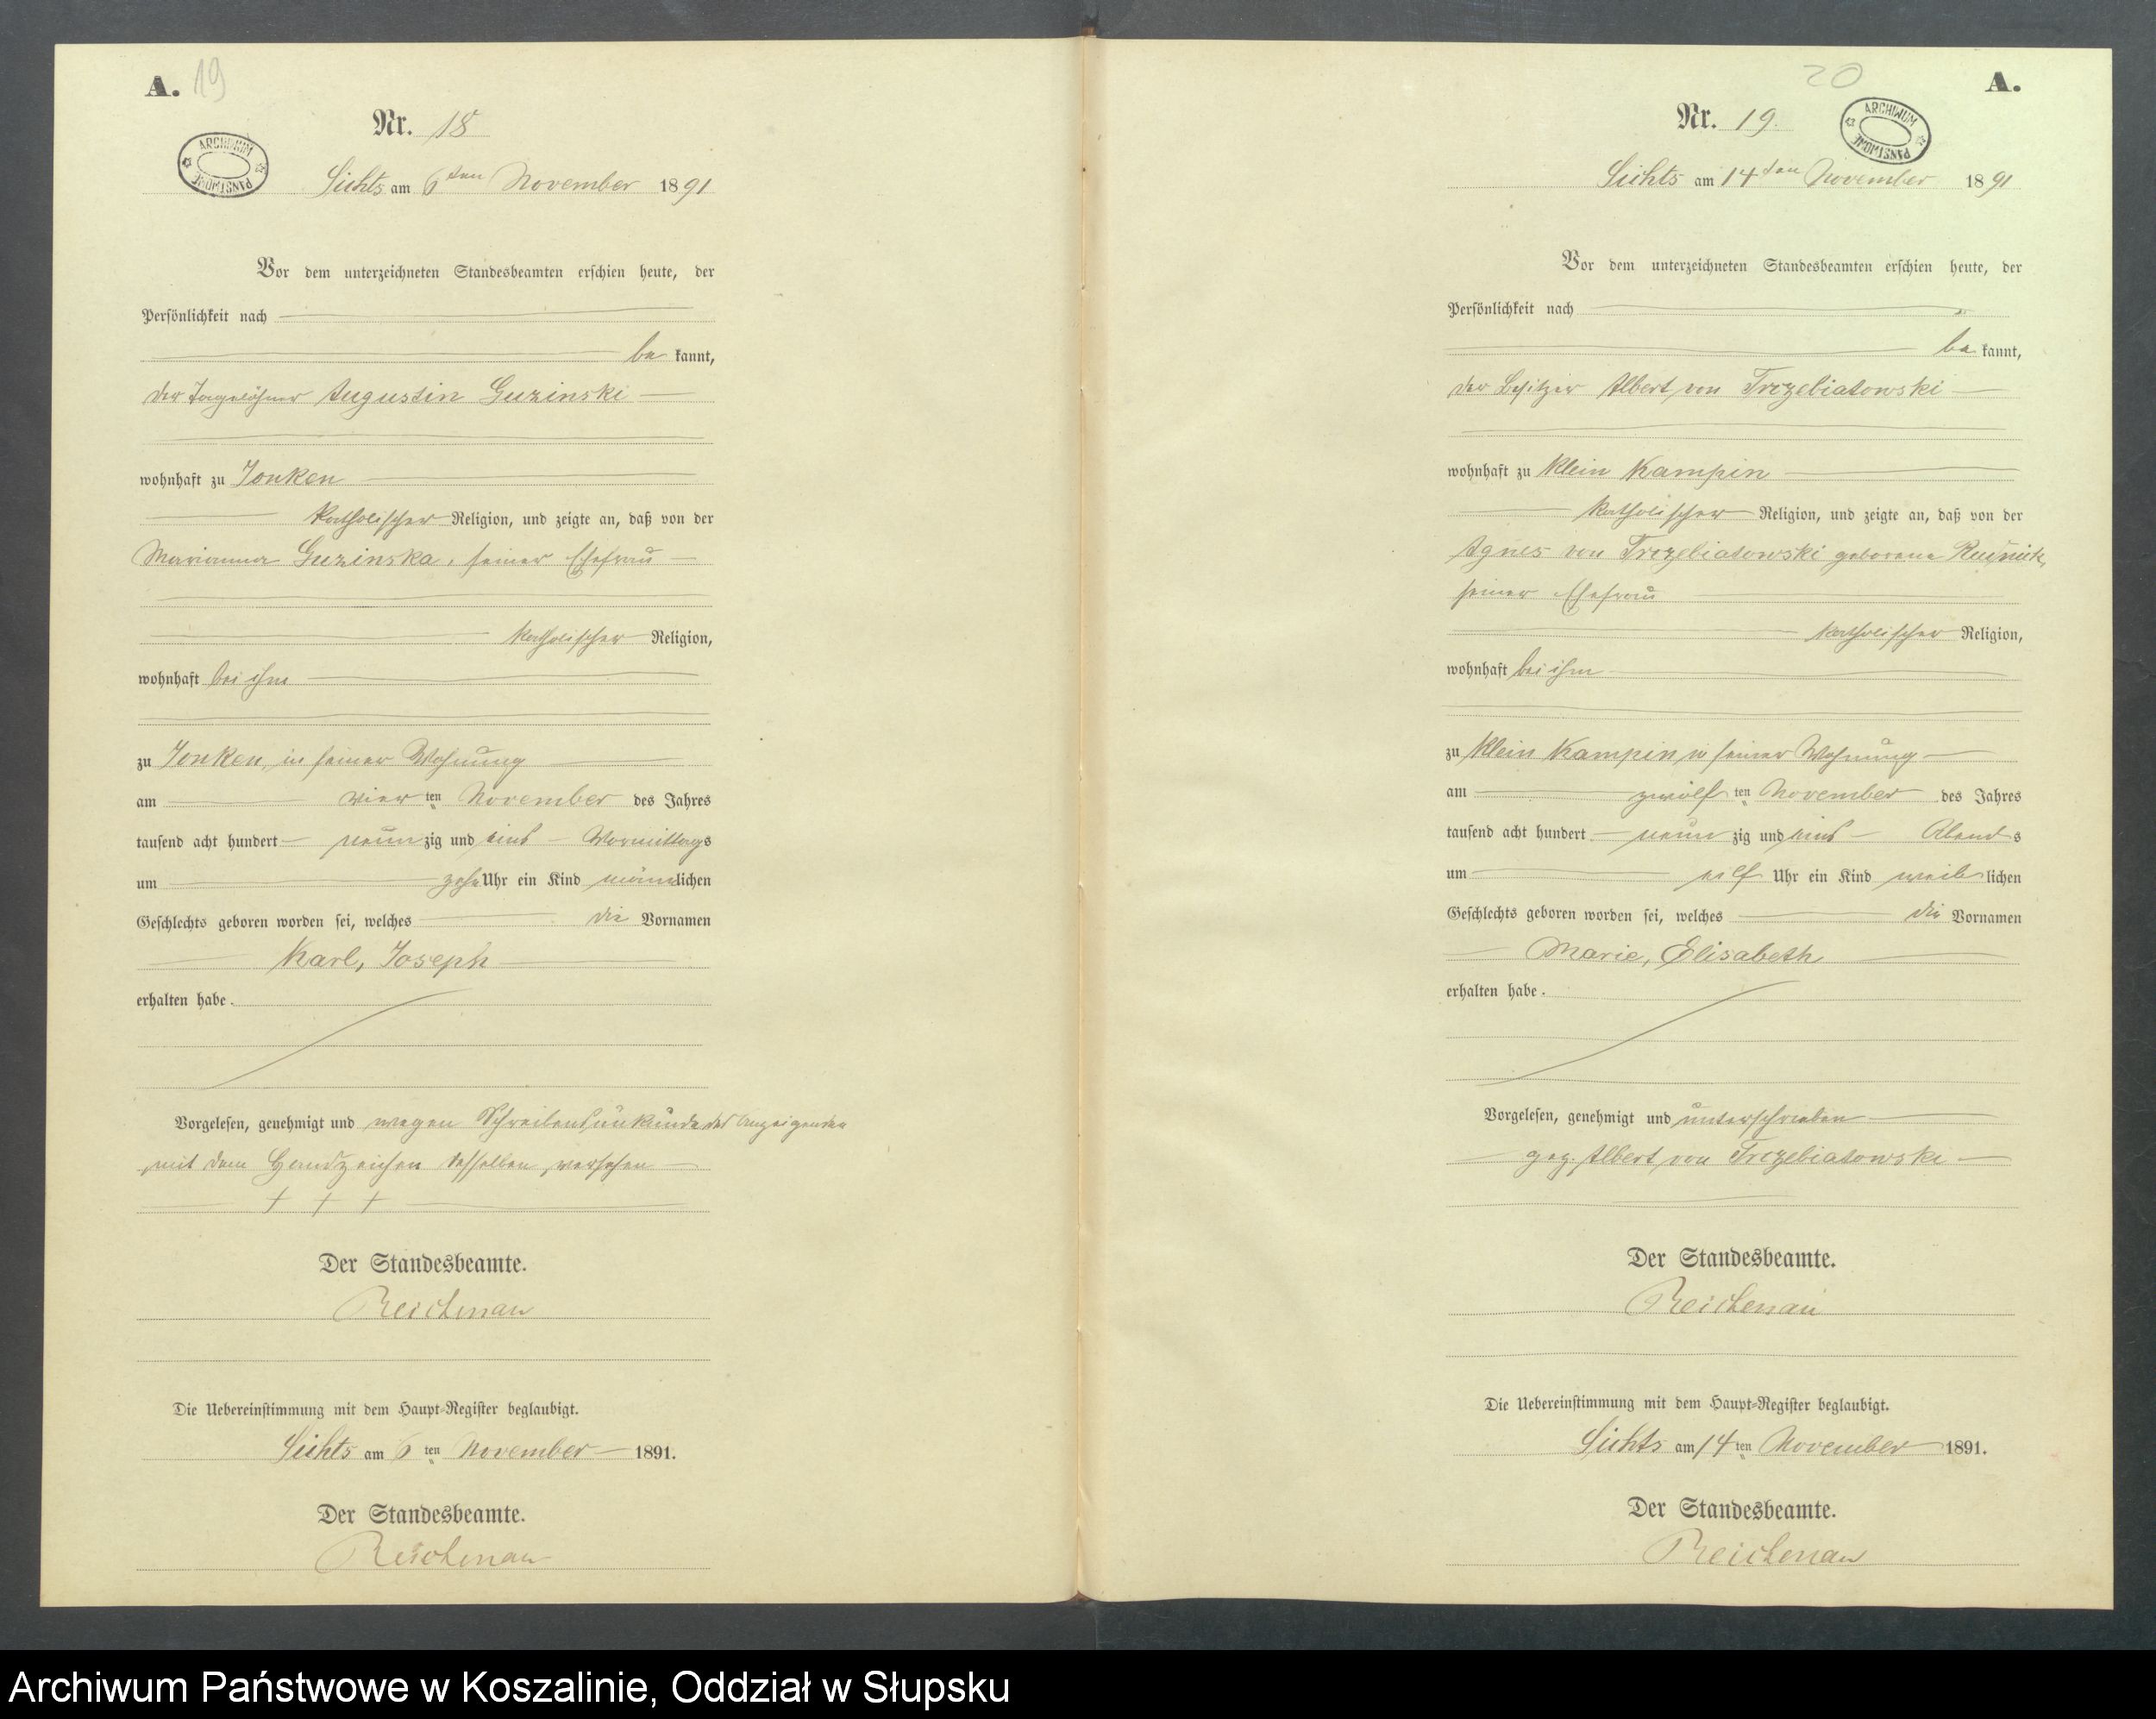 A. 19
Nr. 18
ARCHIWUM PAŃSTWOWE
Sichts am 6ten November 1891
Vor dem unterzeichneten Standesbeamten erschien heute, der
Persönlichkeit nach
be kannt,
der Tagelöhner Augustin Guzinski
wohnhaft zu Jonken
katholischer Religion, und zeigte an, daß von der
Marianna Guzinska, seiner Ehefrau
katholischer Religion,
wohnhaft bei ihm
zu Jonken in seiner Wohnung
am vier ten November des Jahres
tausend acht hundert neun zig und eins Vormittags
um zehn Uhr ein Kind männlichen
Geschlechts geboren worden sei, welches die Vornamen
Karl, Joseph
erhalten habe.
Vorgelesen, genehmigt und wegen Schreibensunkunde des Anzeigenden
mit dem Handzeichen desselben versehen
+ + +
Der Standesbeamte.
Reichenau
Die Uebereinstimmung mit dem Haupt-Register beglaubigt.
Sichts am 6 ten November 1891.
Der Standesbeamte.
Reichenau
20 A.
Nr. 19.
ARCHIWUM PAŃSTWOWE
Sichts am 14ten November 1891
Vor dem unterzeichneten Standesbeamten erschien heute, der
Persönlichkeit nach
be kannt,
der Besitzer Albert von Trzebiatowski
wohnhaft zu Klein Kampin
katholischer Religion, und zeigte an, daß von der
Agnes von Trzebiatowski geborene
seiner Ehefrau
katholischer Religion,
wohnhaft bei ihm
zu Klein Kampin in seiner Wohnung
am zwölf ten November des Jahres
tausend acht hundert neun zig und eins Abends
um elf Uhr ein Kind weib lichen
Geschlechts geboren worden sei, welches die Vornamen
Marie, Elisabeth
erhalten habe.
Vorgelesen, genehmigt und unterschrieben
gez. Albert von Trzebiatowski
Der Standesbeamte.
Reichenau
Die Uebereinstimmung mit dem Haupt-Register beglaubigt.
Sichts am 14 ten November 1891.
Der Standesbeamte.
Reichenau
Archiwum Państwowe w Koszalinie, Oddział w Słupsku